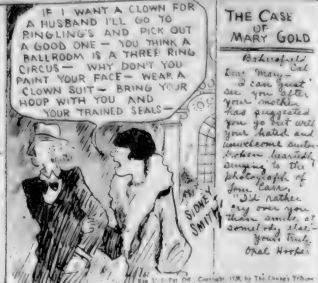 IF I WANT A CLOWN FOR
A HUSBAND I'LL GO TO
RINGLING'S AND PICK OUT
A GOOD ONE — YOU THINK A
BALLROOM IS A THREE RING
CIRCUS — WHY DON'T YOU
PAINT YOUR FACE — WEAR A
CLOWN SUIT — BRING YOUR
HOOP WITH YOU AND
YOUR TRAINED SEALS —
SIDNEY
SMITH
THE CASE
OF
MARY GOLD
Bakersfield
Cal
Dear Mary —
I can just
see you after
your mother
has suggested
you go out with
your hated and
unwelcome suitor
broken heartedly
to the
photograph of
Tom Carr.
"I'd rather
cry over you
than smile at
somebody else"
Yours truly
Opal Hooper
Copyright by The Chicago Tribune